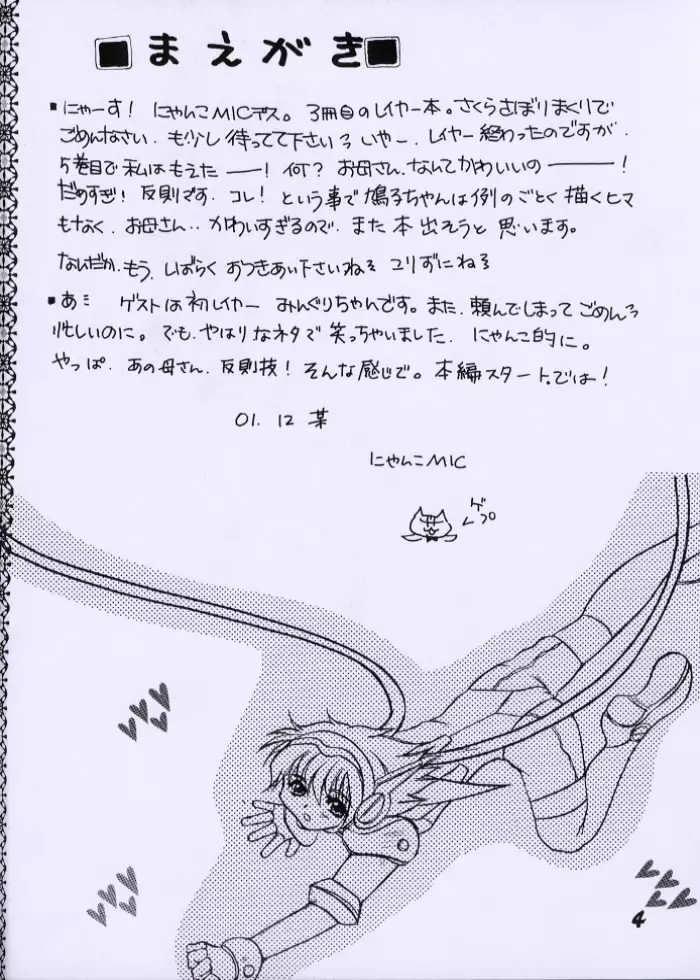 まえがき
▪にゃーす！ にゃんこMICデス。3冊目のレイヤー本。さくらさぼりまくりで
ごめんなさい. も少し待ってて下さいろ いやー. レイヤー終わったのですが.
5巻目で私はもえた――！何？お母さん、なんてかわいいの――！
だめすぎ！反則です. コレ！という事で鳩子ちゃんは例のごとく描くヒマ
もなく. お母さん‥ かわいすぎるので. また本出そうと思います。
なんだか. もう. しばらくおつきあい下さいね コリずにね
▪あ ゲストは初レイヤー みんぐりちゃんです。また. 頼んでしまってごめん
忙しいのに。でも. やはりなネタで笑っちゃいました. にゃんこ的に。
やっぱ. あの母さん. 反則技！そんな感じで。本編スタート.では！
01. 12 某
にゃんこMIC
ゲプ
4